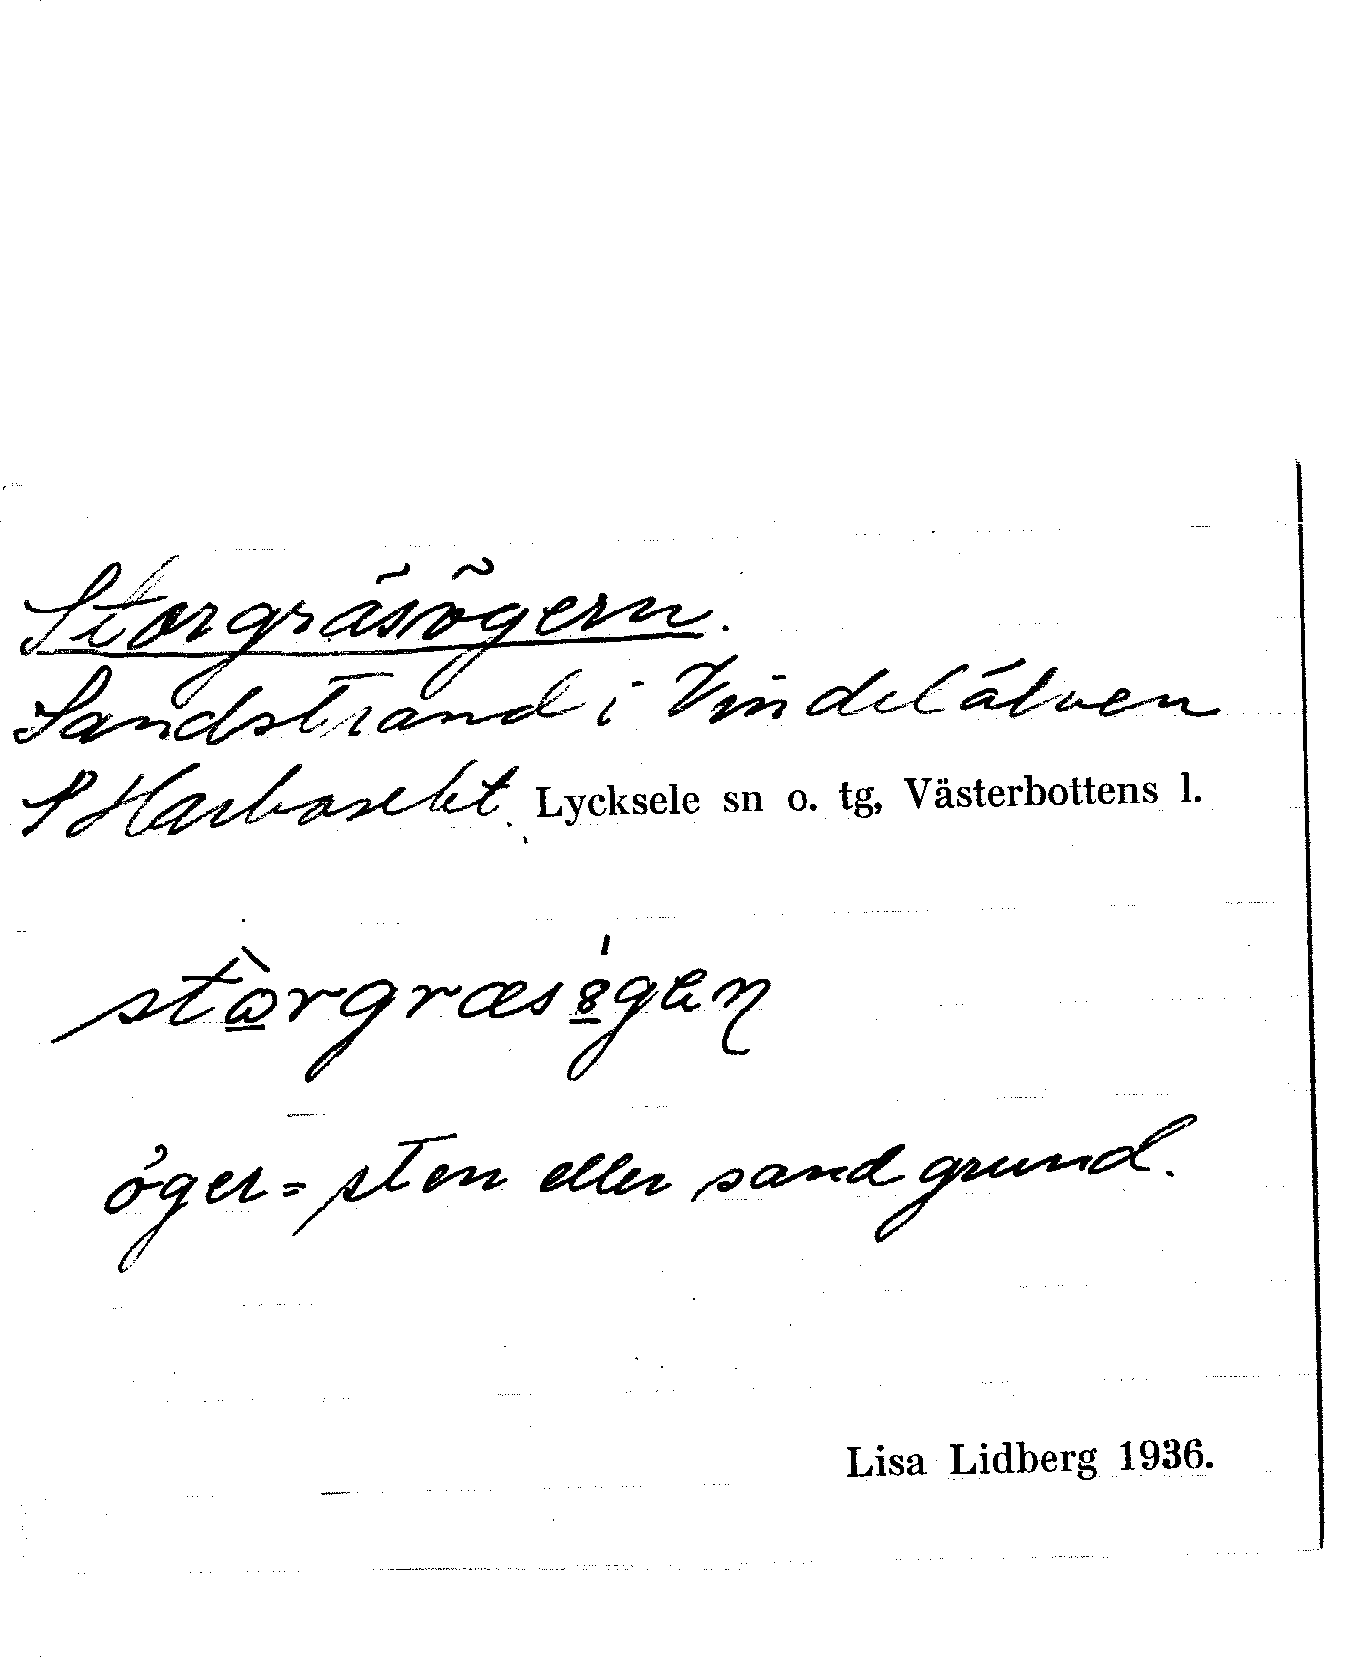 Storgräsögern.
Sandstrand i Vindelälven
S Harbäcket Lycksele sn o. tg, Västerbottens l.
öger = sten eller sandgrund.
Lisa Lidberg 1936.